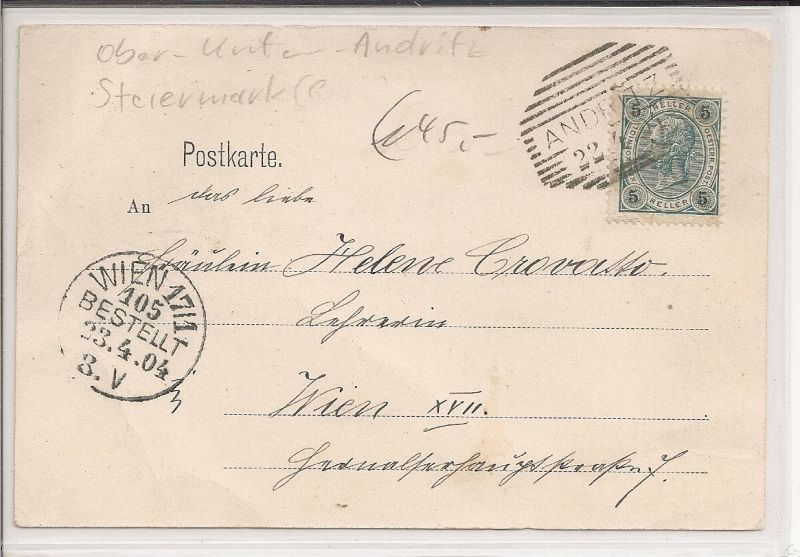 Ober-Unter-Andritz
Steiermark
45,-
ANDRITZ
22
5 5
HELLER
5 5
HELLER
OESTERR. POST
Postkarte.
An das liebe
Fräulein Helene Crovatto.
Lehrerin
Wien XVII.
Hernalserhauptstraße 7.
WIEN 17/1
105
BESTELLT
23.4.04
8.V